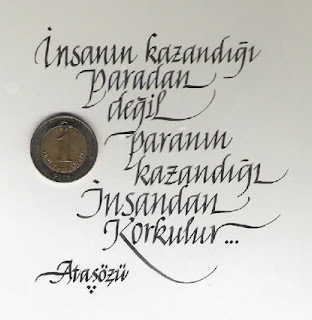 İnsanın kazandığı
paradan
değil
paranın
kazandığı
İnsandan
Korkulur...
Atasözü
1